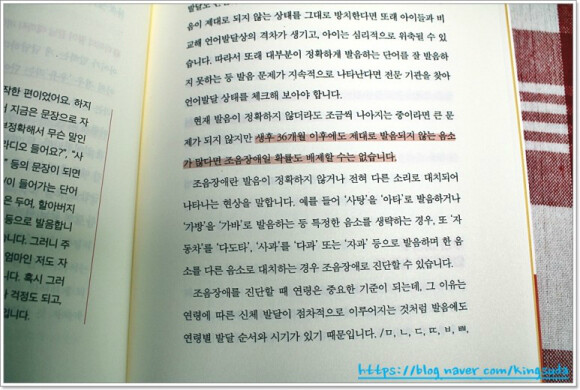 작한 편이었어요. 하지
지금은 문장으로 자
부정확해서 무슨 말인
라디오 들어요?", "사
" 등의 문장이 되면
이 들어가는 단어
은 두여, 할아버지
등으로 발음합니
니다. 그러니 주
엄마인 저도 자
니다. 혹시 그러
가 걱정도 되고,
입니다.
음이 제대로 되지 않는 상태를 그대로 방치한다면 또래 아이들과 비
교해 언어발달상의 격차가 생기고, 아이는 심리적으로 위축될 수 있
습니다. 따라서 또래 대부분이 정확하게 발음하는 단어를 잘 발음하
지 못하는 등 발음 문제가 지속적으로 나타난다면 전문 기관을 찾아
언어발달 상태를 체크해 보아야 합니다.
현재 발음이 정확하지 않더라도 조금씩 나아지는 중이라면 큰 문
제가 되지 않지만 생후 36개월 이후에도 제대로 발음되지 않는 음소
가 많다면 조음장애일 확률도 배제할 수는 없습니다.
조음장애란 발음이 정확하지 않거나 전혀 다른 소리로 대치되어
나타나는 현상을 말합니다. 예를 들어 '사탕'을 '아타'로 발음하거나
'가방'을 '가바'로 발음하는 등 특정한 음소를 생략하는 경우, 또 '자
동차'를 '다도타', '사과'를 '다과' 또는 '자과' 등으로 발음하며 한 음
소를 다른 음소로 대치하는 경우 조음장애로 진단할 수 있습니다.
조음장애를 진단할 때 연령은 중요한 기준이 되는데, 그 이유는
연령에 따른 신체 발달이 점차적으로 이루어지는 것처럼 발음에도
연령별 발달 순서와 시기가 있기 때문입니다. /ㅁ, ㄴ, ㄷ, ㄸ, ㅂ, ㅃ,
https://blog.naver.com/kingsuda